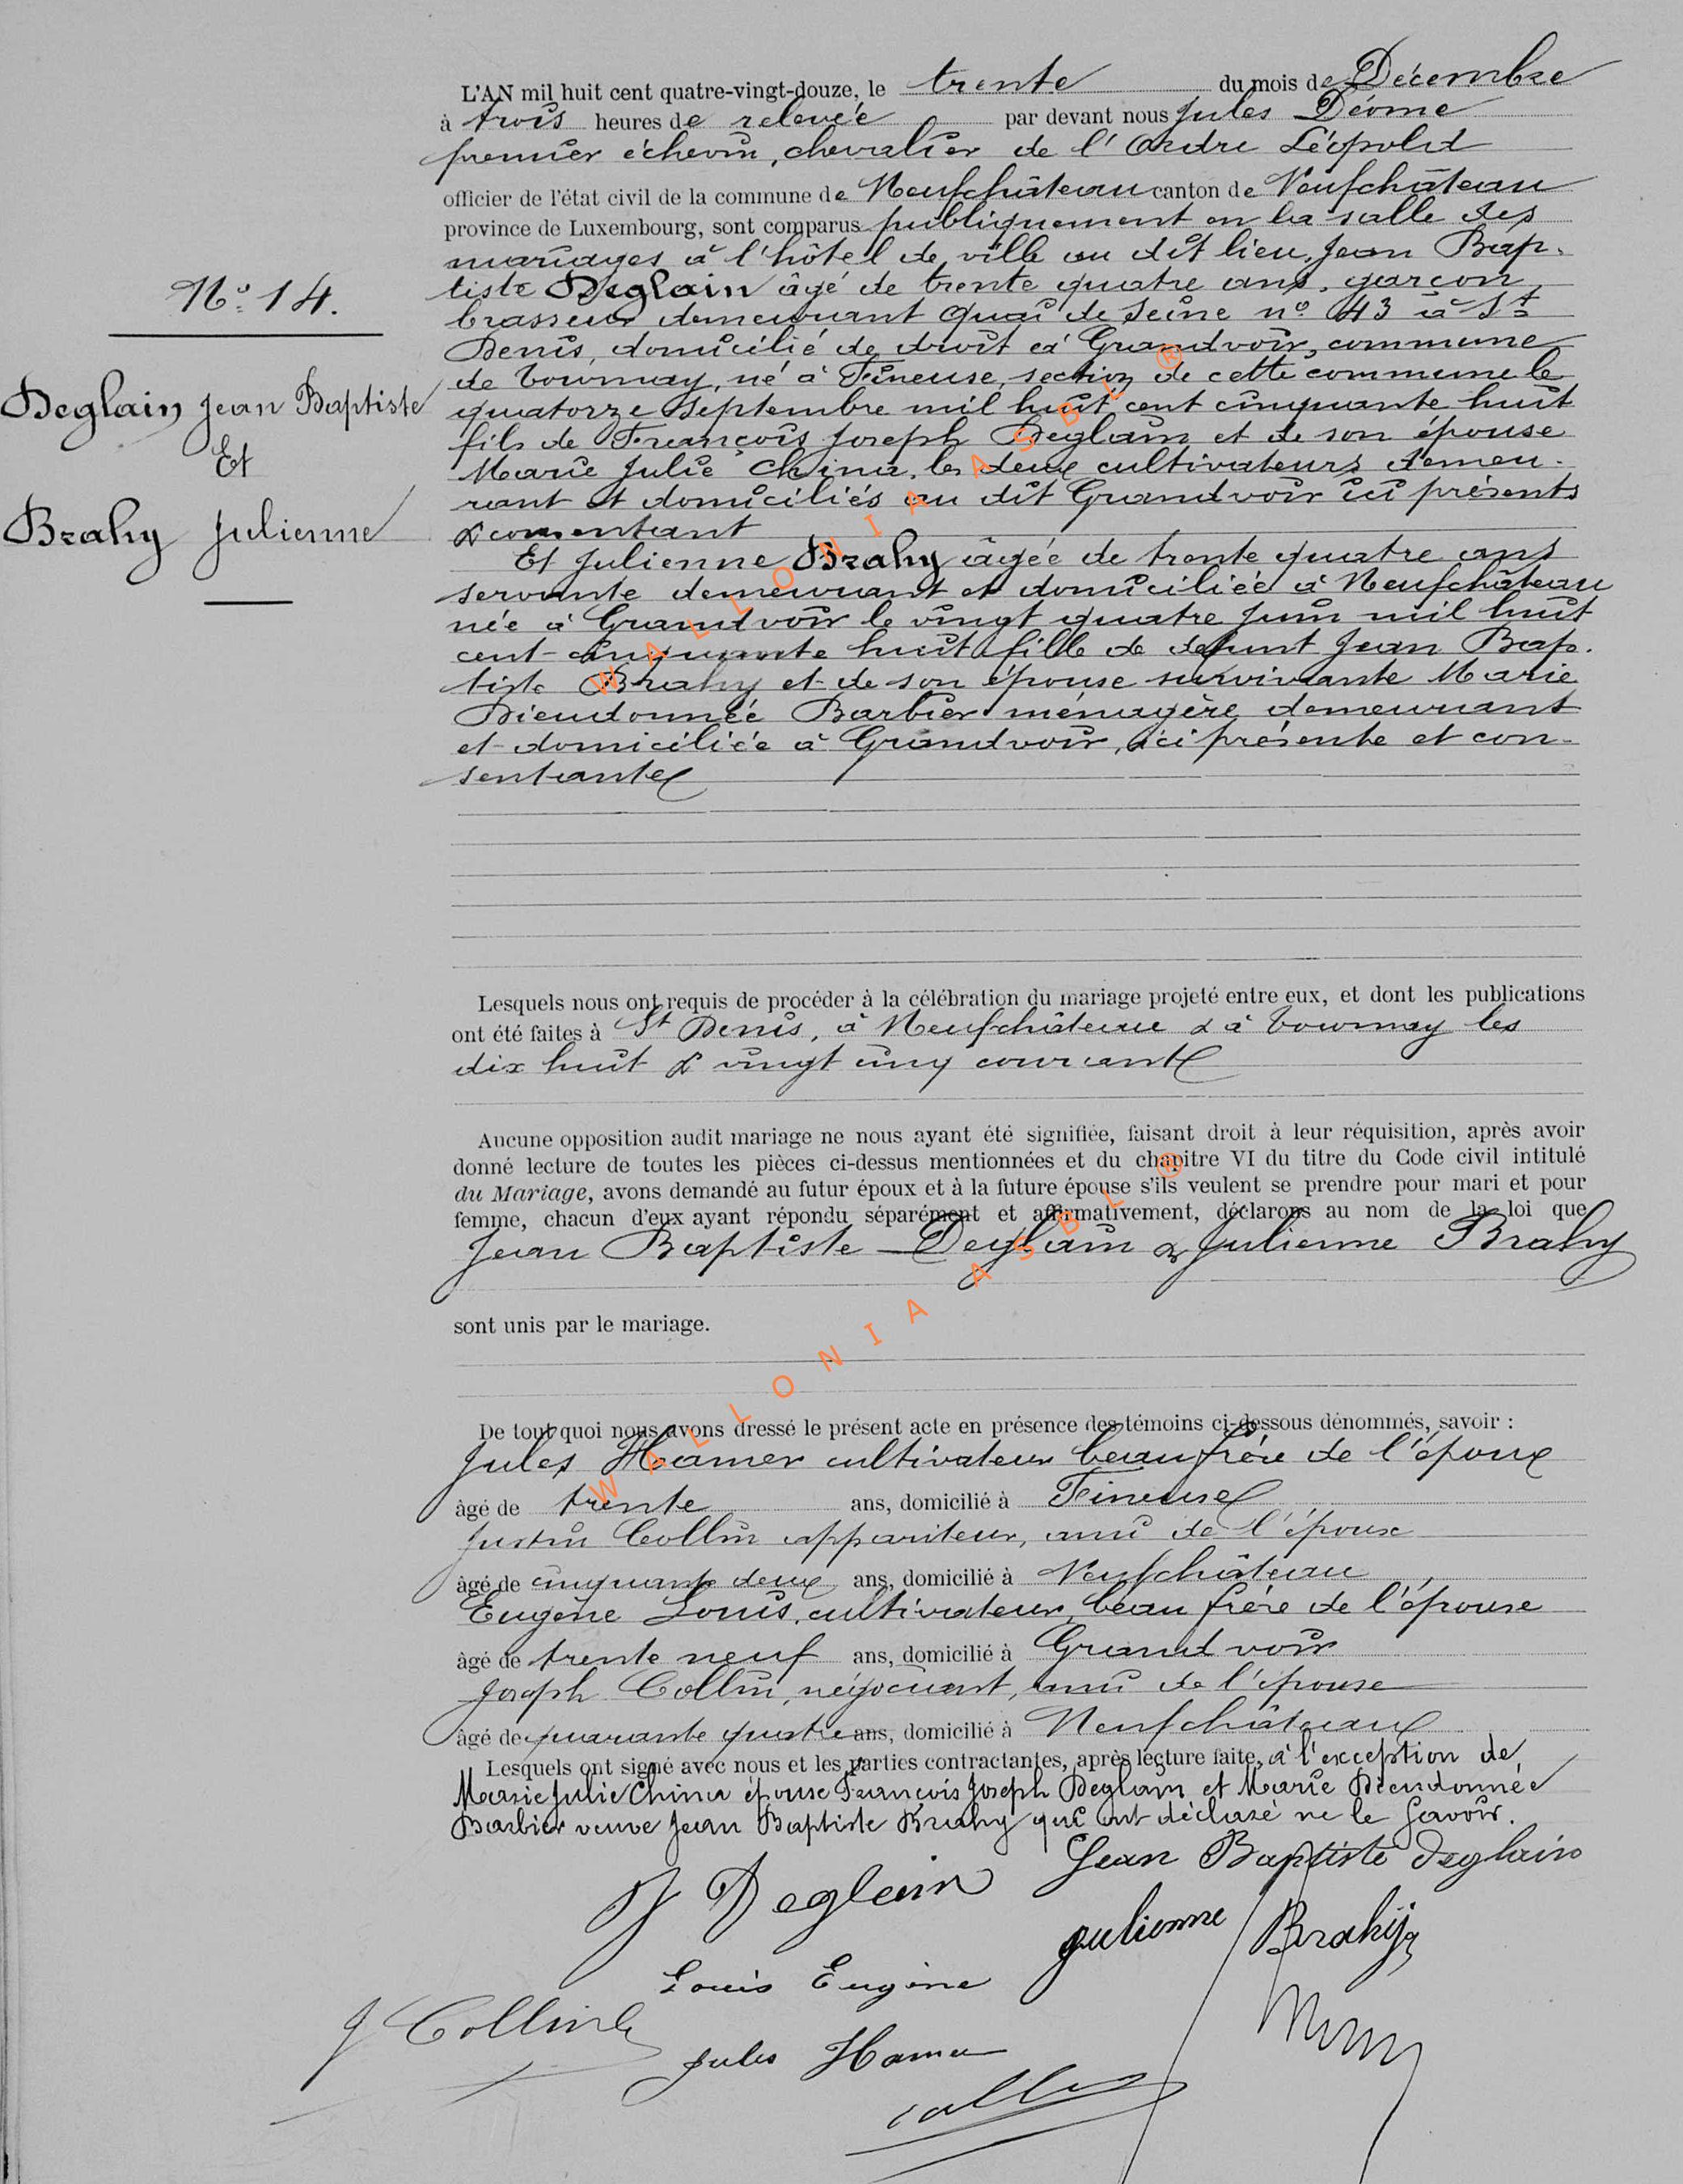 L'AN mil huit cent quatre-vingt-douze, le trente du mois de Décembre
à trois heures de relevée par devant nous Jules Déome
premier échevin, chevalier de l'Ordre Léopold
officier de l'état civil de la commune de Neufchâteau canton de Neufchâteau
province de Luxembourg, sont comparus publiquement en la salle des
mariages à l'hôtel de ville au dit lieu, Jean Bap-
tiste Deglain âgé de trente quatre ans, garçon
brasseur demeurant quai de Seine n° 43 à St
Denis, domicilié de droit à Grandvoir, commune
de Tournay, né à Fineuse, section de cette commune le
quatorze Septembre mil huit cent cinquante huit
fils de François Joseph Deglain et de son épouse
Marie Julie China, les deux cultivateurs demeu-
rant et domiciliés au dit Grandvoir ici présents
& consentant
Et Julienne Brahy âgée de trente quatre ans
servante demeurant et domiciliée à Neufchâteau
née à Grandvoir le vingt quatre Juin mil huit
cent cinquante huit fille de defunt Jean Bap-
tiste Brahy et de son épouse survivante Marie
Dieudonnée Barbier ménagère demeurant
et domiciliée à Grandvoir, ici présente et con-
sentante
N° 14.
Deglain Jean Baptiste
Et
Brahy Julienne
Lesquels nous ont requis de procéder à la célébration du mariage projeté entre eux, et dont les publications
ont été faites à St Denis, à Neufchâteau & à Tournay les
dix huit & vingt cinq courant
Aucune opposition audit mariage ne nous ayant été signifiée, faisant droit à leur réquisition, après avoir
donné lecture de toutes les pièces ci-dessus mentionnées et du chapitre VI du titre du Code civil intitulé
du Mariage, avons demandé au futur époux et à la future épouse s'ils veulent se prendre pour mari et pour
femme, chacun d'eux ayant répondu séparément et affirmativement, déclarons au nom de la loi que
Jean Baptiste Deglain & Julienne Brahy
sont unis par le mariage.
De tout quoi nous avons dressé le présent acte en présence des témoins ci-dessous dénommés, savoir :
Jules Hamer cultivateur beau frère de l'époux
âgé de trente ans, domicilié à Fineuse
Justin Collin appariteur, ami de l'époux
âgé de cinquante deux ans, domicilié à Neufchâteau
Eugène Louis, cultivateur, beau frère de l'épouse
âgé de trente neuf ans, domicilié à Grandvoir
Joseph Collin, négociant, ami de l'épouse
âgé de quarante quatre ans, domicilié à Neufchâteau
Lesquels ont signé avec nous et les parties contractantes, après lecture faite, à l'exception de
Marie Julie China épouse François Joseph Deglain et Marie Dieudonnée
Barbier veuve Jean Baptiste Brahy qui ont déclaré ne le savoir.
Jean Baptiste Deglain
Deglain
Julienne Brahy
Louis Eugène
J Collin
Jules Hamer
WALLONIA ASBL ®
WALLONIA ASBL ®